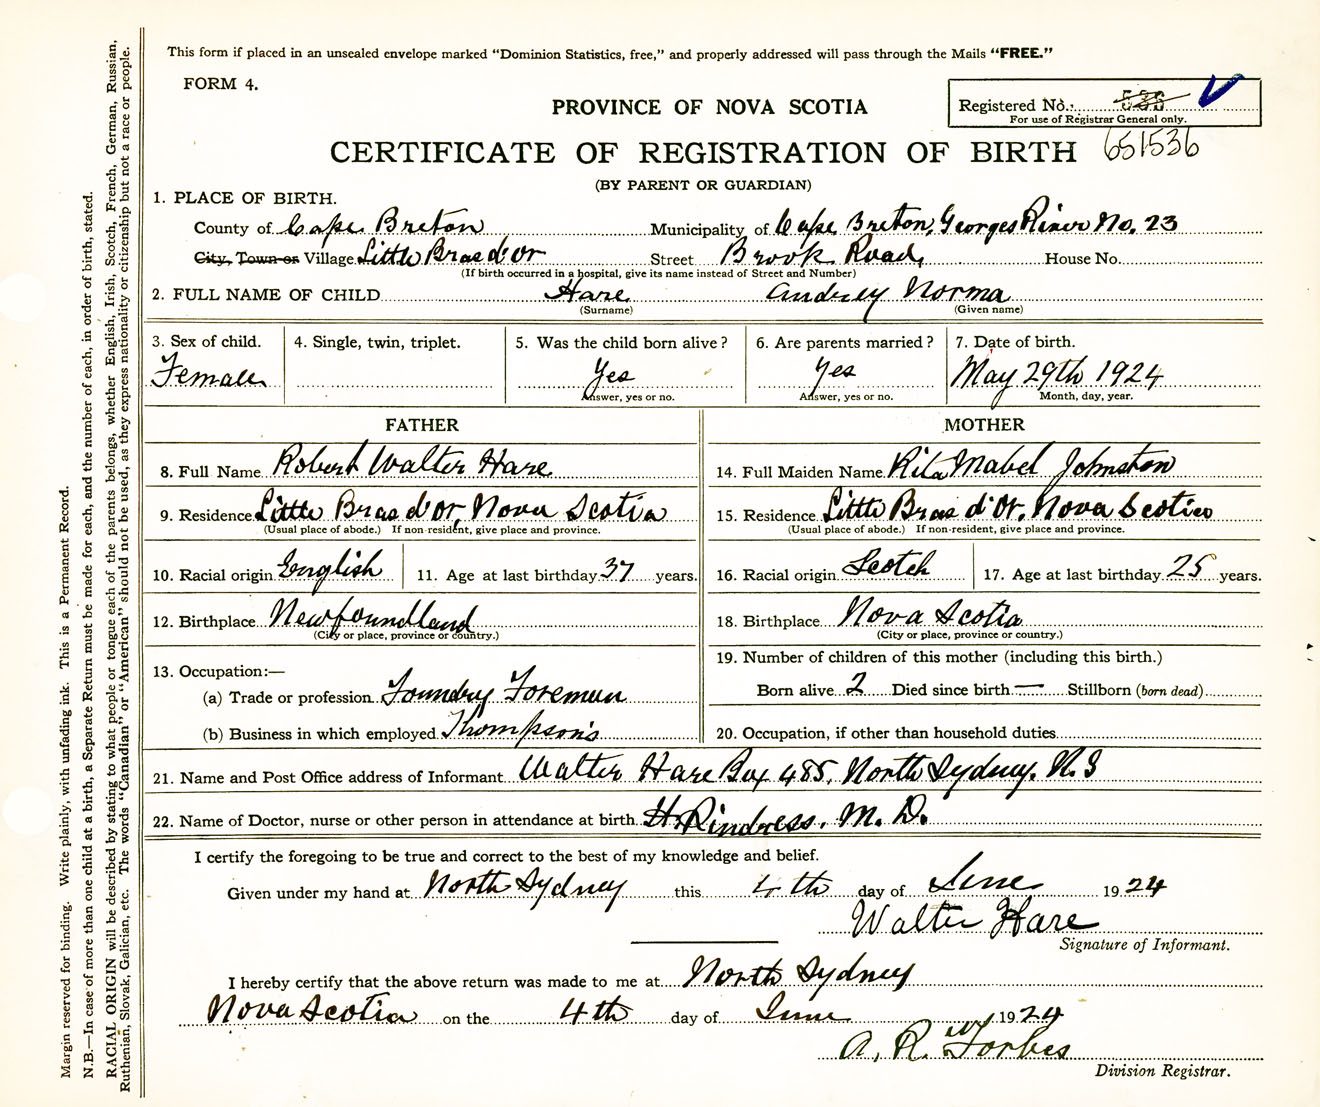 This form if placed in an unsealed envelope marked "Dominion Statistics, free," and properly addressed will pass through the Mails "FREE."
FORM 4.
Registered No. 536
For use of Registrar General only.
651536
PROVINCE OF NOVA SCOTIA
CERTIFICATE OF REGISTRATION OF BIRTH
(BY PARENT OR GUARDIAN)
1. PLACE OF BIRTH.
County of Cape Breton Municipality of Cape Breton, Georges River No. 23
City, Town or Village Little Bras d'or Street Brook Road, House No.
(If birth occurred in a hospital, give its name instead of Street and Number)
2. FULL NAME OF CHILD Hare Audrey Norma
(Surname) (Given name)
3. Sex of child. 4. Single, twin, triplet. 5. Was the child born alive? 6. Are parents married? 7. Date of birth.
Female Yes Yes May 29th 1924
Answer, yes or no. Answer, yes or no. Month, day, year.
FATHER MOTHER
8. Full Name Robert Walter Hare 14. Full Maiden Name Rita Mabel Johnston
9. Residence Little Bras d'or, Nova Scotia 15. Residence Little Bras d'Or, Nova Scotia
(Usual place of abode.) If non-resident, give place and province. (Usual place of abode.) If non-resident, give place and province.
10. Racial origin English 11. Age at last birthday 37 years. 16. Racial origin Scotch 17. Age at last birthday 25 years.
12. Birthplace Newfoundland 18. Birthplace Nova Scotia
(City or place, province or country.) (City or place, province or country.)
13. Occupation:— 19. Number of children of this mother (including this birth.)
(a) Trade or profession Foundry Foreman Born alive 2 Died since birth — Stillborn (born dead)
(b) Business in which employed Thompson's 20. Occupation, if other than household duties
21. Name and Post Office address of Informant Walter Hare Box 485, North Sydney, N.S
22. Name of Doctor, nurse or other person in attendance at birth H. Rindress. M. D.
I certify the foregoing to be true and correct to the best of my knowledge and belief.
Given under my hand at North Sydney this 4th day of June 1924
Walter Hare
Signature of Informant.
I hereby certify that the above return was made to me at North Sydney
Nova Scotia on the 4th day of June 1924
A. R. Forbes
Division Registrar.
Margin reserved for binding. Write plainly, with unfading ink. This is a Permanent Record.
N.B.—In case of more than one child at a birth, a Separate Return must be made for each, and the number of each, in order of birth, stated.
RACIAL ORIGIN will be described by stating to what people or tongue each of the parents belongs, whether English, Irish, Scotch, French, German, Russian,
Ruthenian, Slovak, Galician, etc. The words "Canadian" or "American" should not be used, as they express nationality or citizenship but not a race or people.